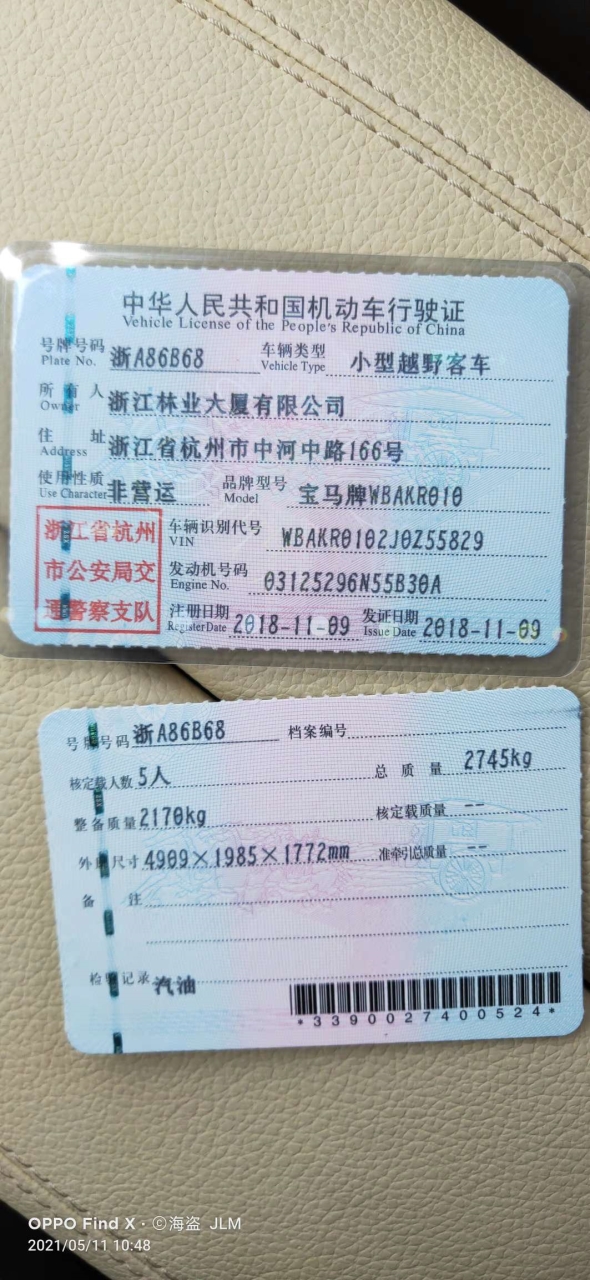 中华人民共和国机动车行驶证
Vehicle License of the People's Republic of China
号牌号码 浙A86B68 车辆类型 小型越野客车
Plate No. Vehicle Type
所有人 浙江林业大厦有限公司
Owner
住址 浙江省杭州市中河中路166号
Address
使用性质 非营运 品牌型号 宝马牌WBAKR010
Use Character Model
浙江省杭州
市公安局交
通警察支队
车辆识别代号 WBAKR0102J0Z55829
VIN
发动机号码 03125296N55B30A
Engine No.
注册日期 2018-11-09 发证日期 2018-11-09
Register Date Issue Date
号牌号码 浙A86B68 档案编号
核定载人数 5人 总质量 2745kg
整备质量 2170kg 核定载质量 --
外廓尺寸 4909×1985×1772mm 准牵引总质量 --
备注
检验记录 汽油
*3390027400524*
OPPO Find X · ©海盗 JLM
2021/05/11 10:48